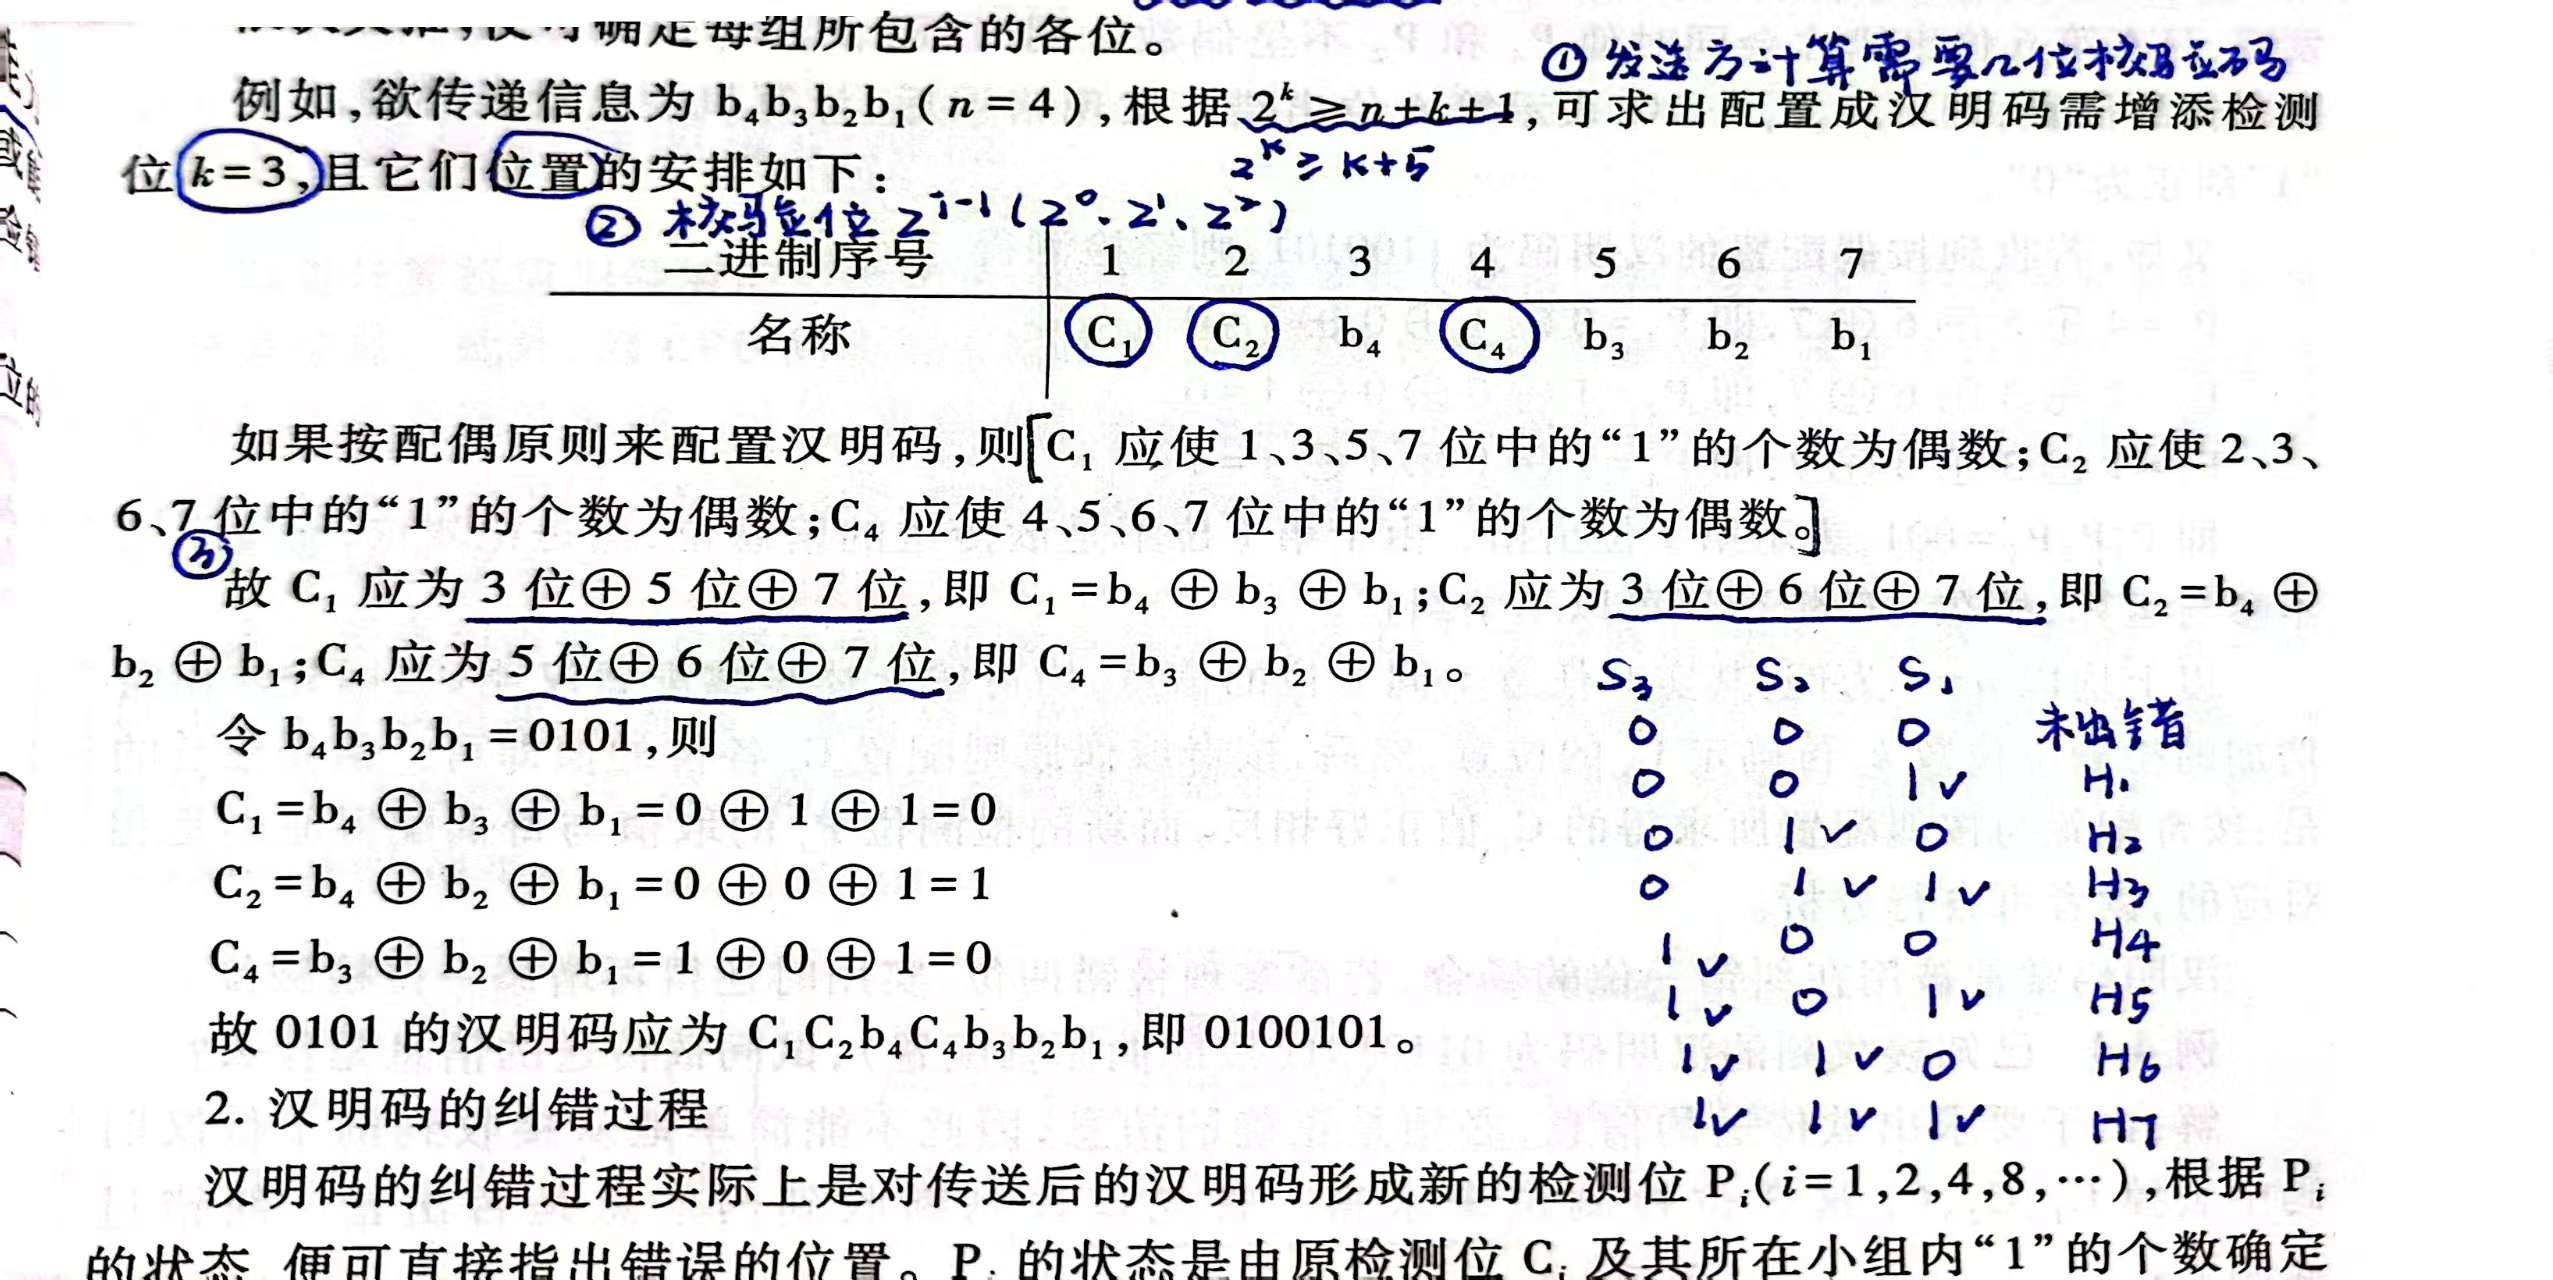 确定每组所包含的各位。
① 发送方计算需要几位校验位码
例如,欲传递信息为 b₄b₃b₂b₁(n=4),根据 2ᵏ≥n+k+1,可求出配置成汉明码需增添检测
位 k=3,且它们位置的安排如下:
2ᵏ ≥ k+5
② 校验位 2ⁱ⁻¹(2⁰、2¹、2²)
二进制序号 1 2 3 4 5 6 7
名称 C₁ C₂ b₄ C₄ b₃ b₂ b₁
如果按配偶原则来配置汉明码,则[C₁ 应使 1、3、5、7 位中的“1”的个数为偶数;C₂ 应使 2、3、
6、7 位中的“1”的个数为偶数;C₄ 应使 4、5、6、7 位中的“1”的个数为偶数。]
③
故 C₁ 应为 3 位⊕5 位⊕7 位,即 C₁=b₄⊕b₃⊕b₁;C₂ 应为 3 位⊕6 位⊕7 位,即 C₂=b₄⊕
b₂⊕b₁;C₄ 应为 5 位⊕6 位⊕7 位,即 C₄=b₃⊕b₂⊕b₁。
令 b₄b₃b₂b₁=0101,则
C₁=b₄⊕b₃⊕b₁=0⊕1⊕1=0
C₂=b₄⊕b₂⊕b₁=0⊕0⊕1=1
C₄=b₃⊕b₂⊕b₁=1⊕0⊕1=0
故 0101 的汉明码应为 C₁C₂b₄C₄b₃b₂b₁,即 0100101。
S₃ S₂ S₁
0 0 0 未出错
0 0 1✓ H₁
0 1✓ 0 H₂
0 1✓ 1✓ H₃
1✓ 0 0 H4
1✓ 0 1✓ H5
1✓ 1✓ 0 H6
1✓ 1✓ 1✓ H7
2. 汉明码的纠错过程
汉明码的纠错过程实际上是对传送后的汉明码形成新的检测位 Pᵢ(i=1,2,4,8,…),根据 Pᵢ
的状态,便可直接指出错误的位置。Pᵢ 的状态是由原检测位 Cᵢ 及其所在小组内“1”的个数确定